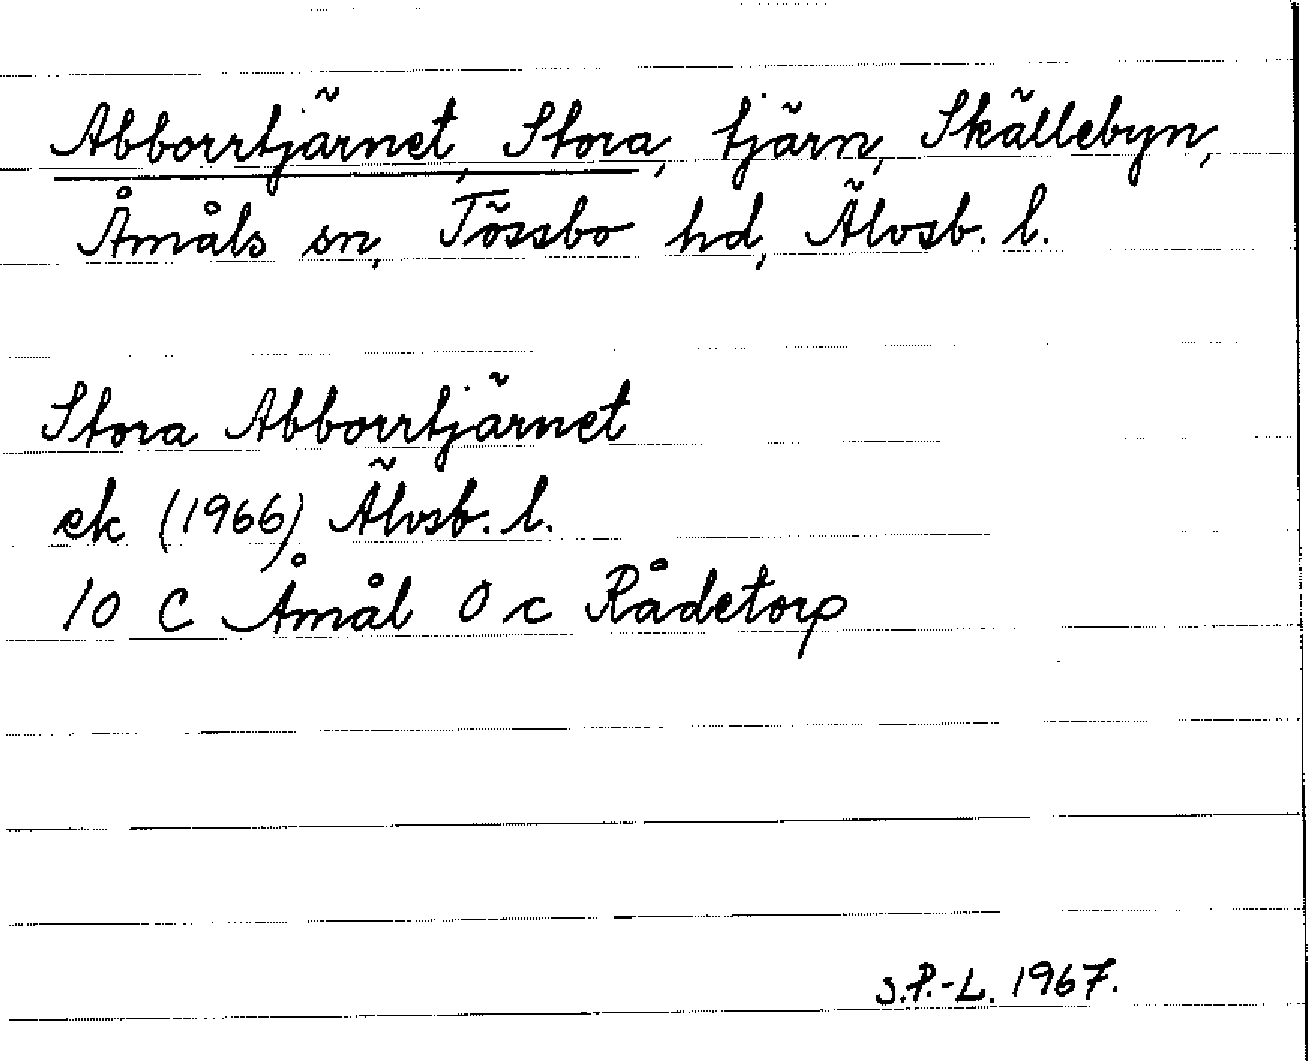 Abborrtjärnet, Stora, tjärn, Skällebyn,
Åmåls sn, Tössbo hd, Älvsb. l.
Stora Abborrtjärnet
ek (1966) Älvsb. l.
10 C Åmål 0 c Rådetorp
S.P.-L. 1967.